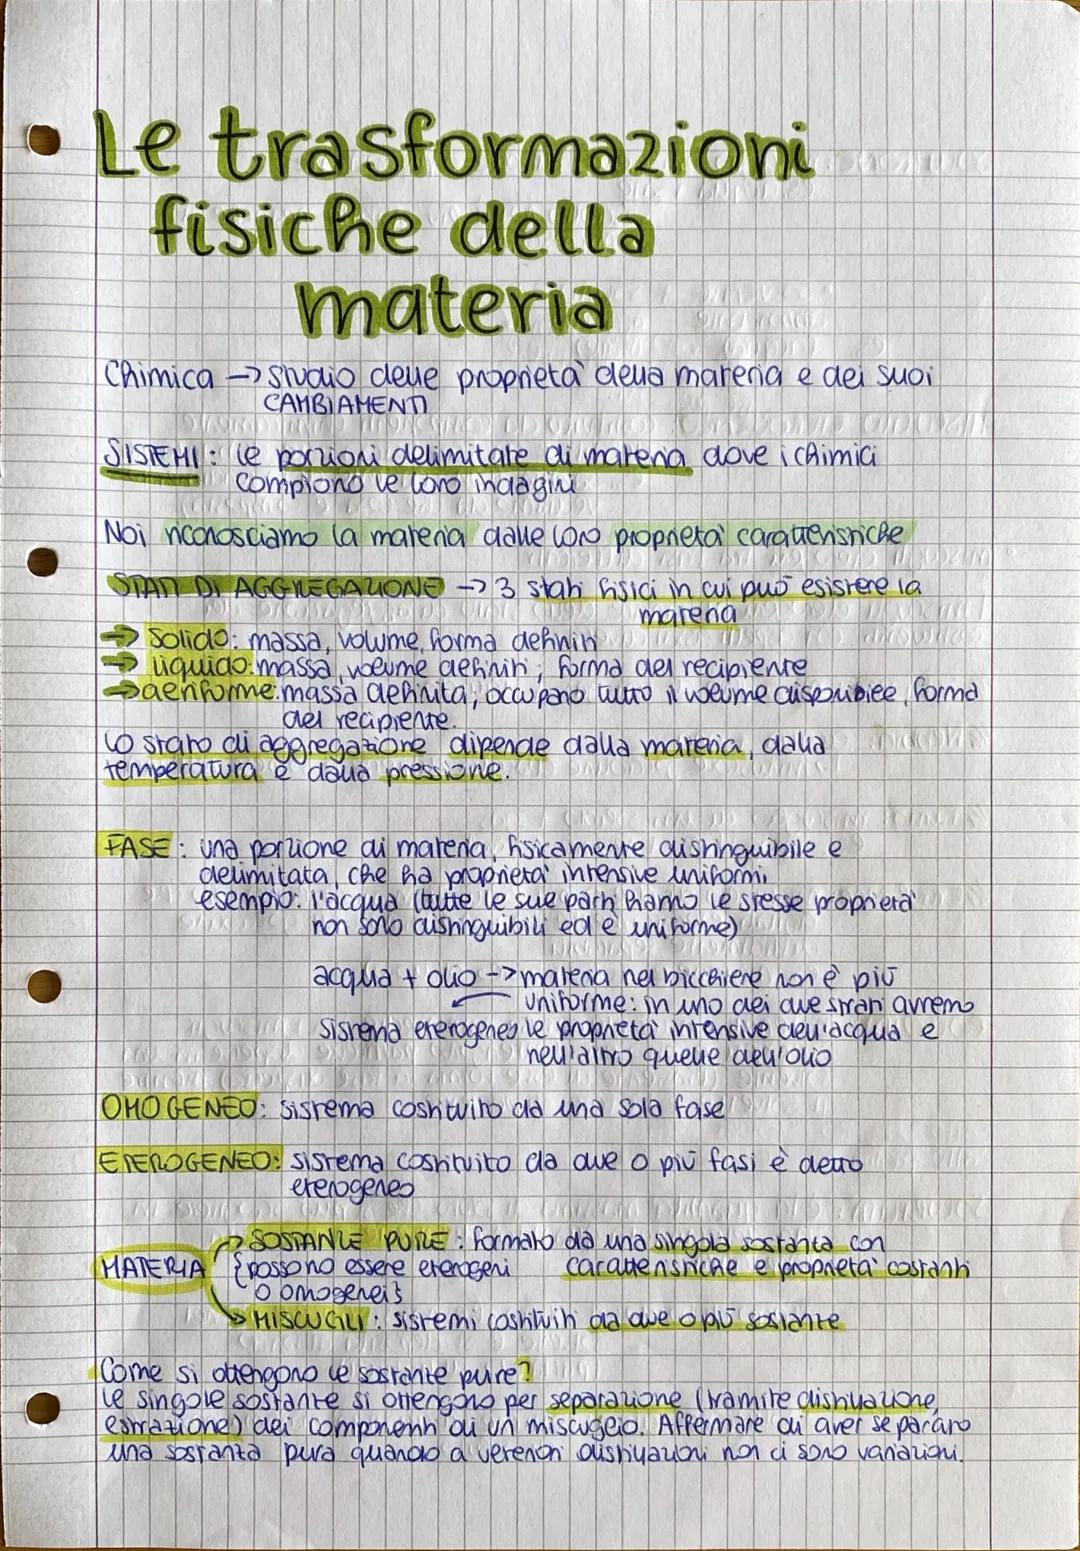 Le trasformazioni
fisiche della
materia
Chimica → studio delle proprietà della materia e dei suoi
CAMBIAMENTI
SISTEMI: le porzioni delimitate di materia dove i chimici
compiono le loro indagini
Noi riconosciamo la materia dalle loro proprietà caratteristiche
STATI DI AGGREGAZIONE → 3 stati fisici in cui può esistere la
materia
→ Solido: massa, volume, forma definiti
→ liquido: massa, volume definiti; forma del recipiente
→ aeriforme: massa definita; occupano tutto il volume disponibile, forma
del recipiente.
Lo stato di aggregazione dipende dalla materia, dalla
temperatura e dalla pressione.
FASE: una porzione di materia, fisicamente distinguibile e
delimitata, che ha proprietà intensive uniformi,
esempio: l'acqua (tutte le sue parti hanno le stesse proprietà
non sono distinguibili ed è uniforme)
acqua + olio -> materia nel bicchiere non è più
uniforme: in uno dei due strati avremo
Sistema eterogeneo le proprietà intensive dell'acqua e
nell'altro quelle dell'olio
OMOGENEO: sistema costituito da una sola fase
ETEROGENEO: sistema costituito da due o più fasi è detto
eterogeneo
→ SOSTANZE PURE: formato da una singola sostanza con
MATERIA {possono essere eterogeni caratteristiche e proprietà costanti
o omogenei}
→ MISCUGLI: sistemi costituiti da due o più sostanze
Come si ottengono le sostanze pure?
Le singole sostanze si ottengono per separazione (tramite distillazione,
estrazione) dei componenti di un miscuglio. Affermare di aver separato
una sostanza pura quando a ulteriori distillazioni non ci sono variazioni.